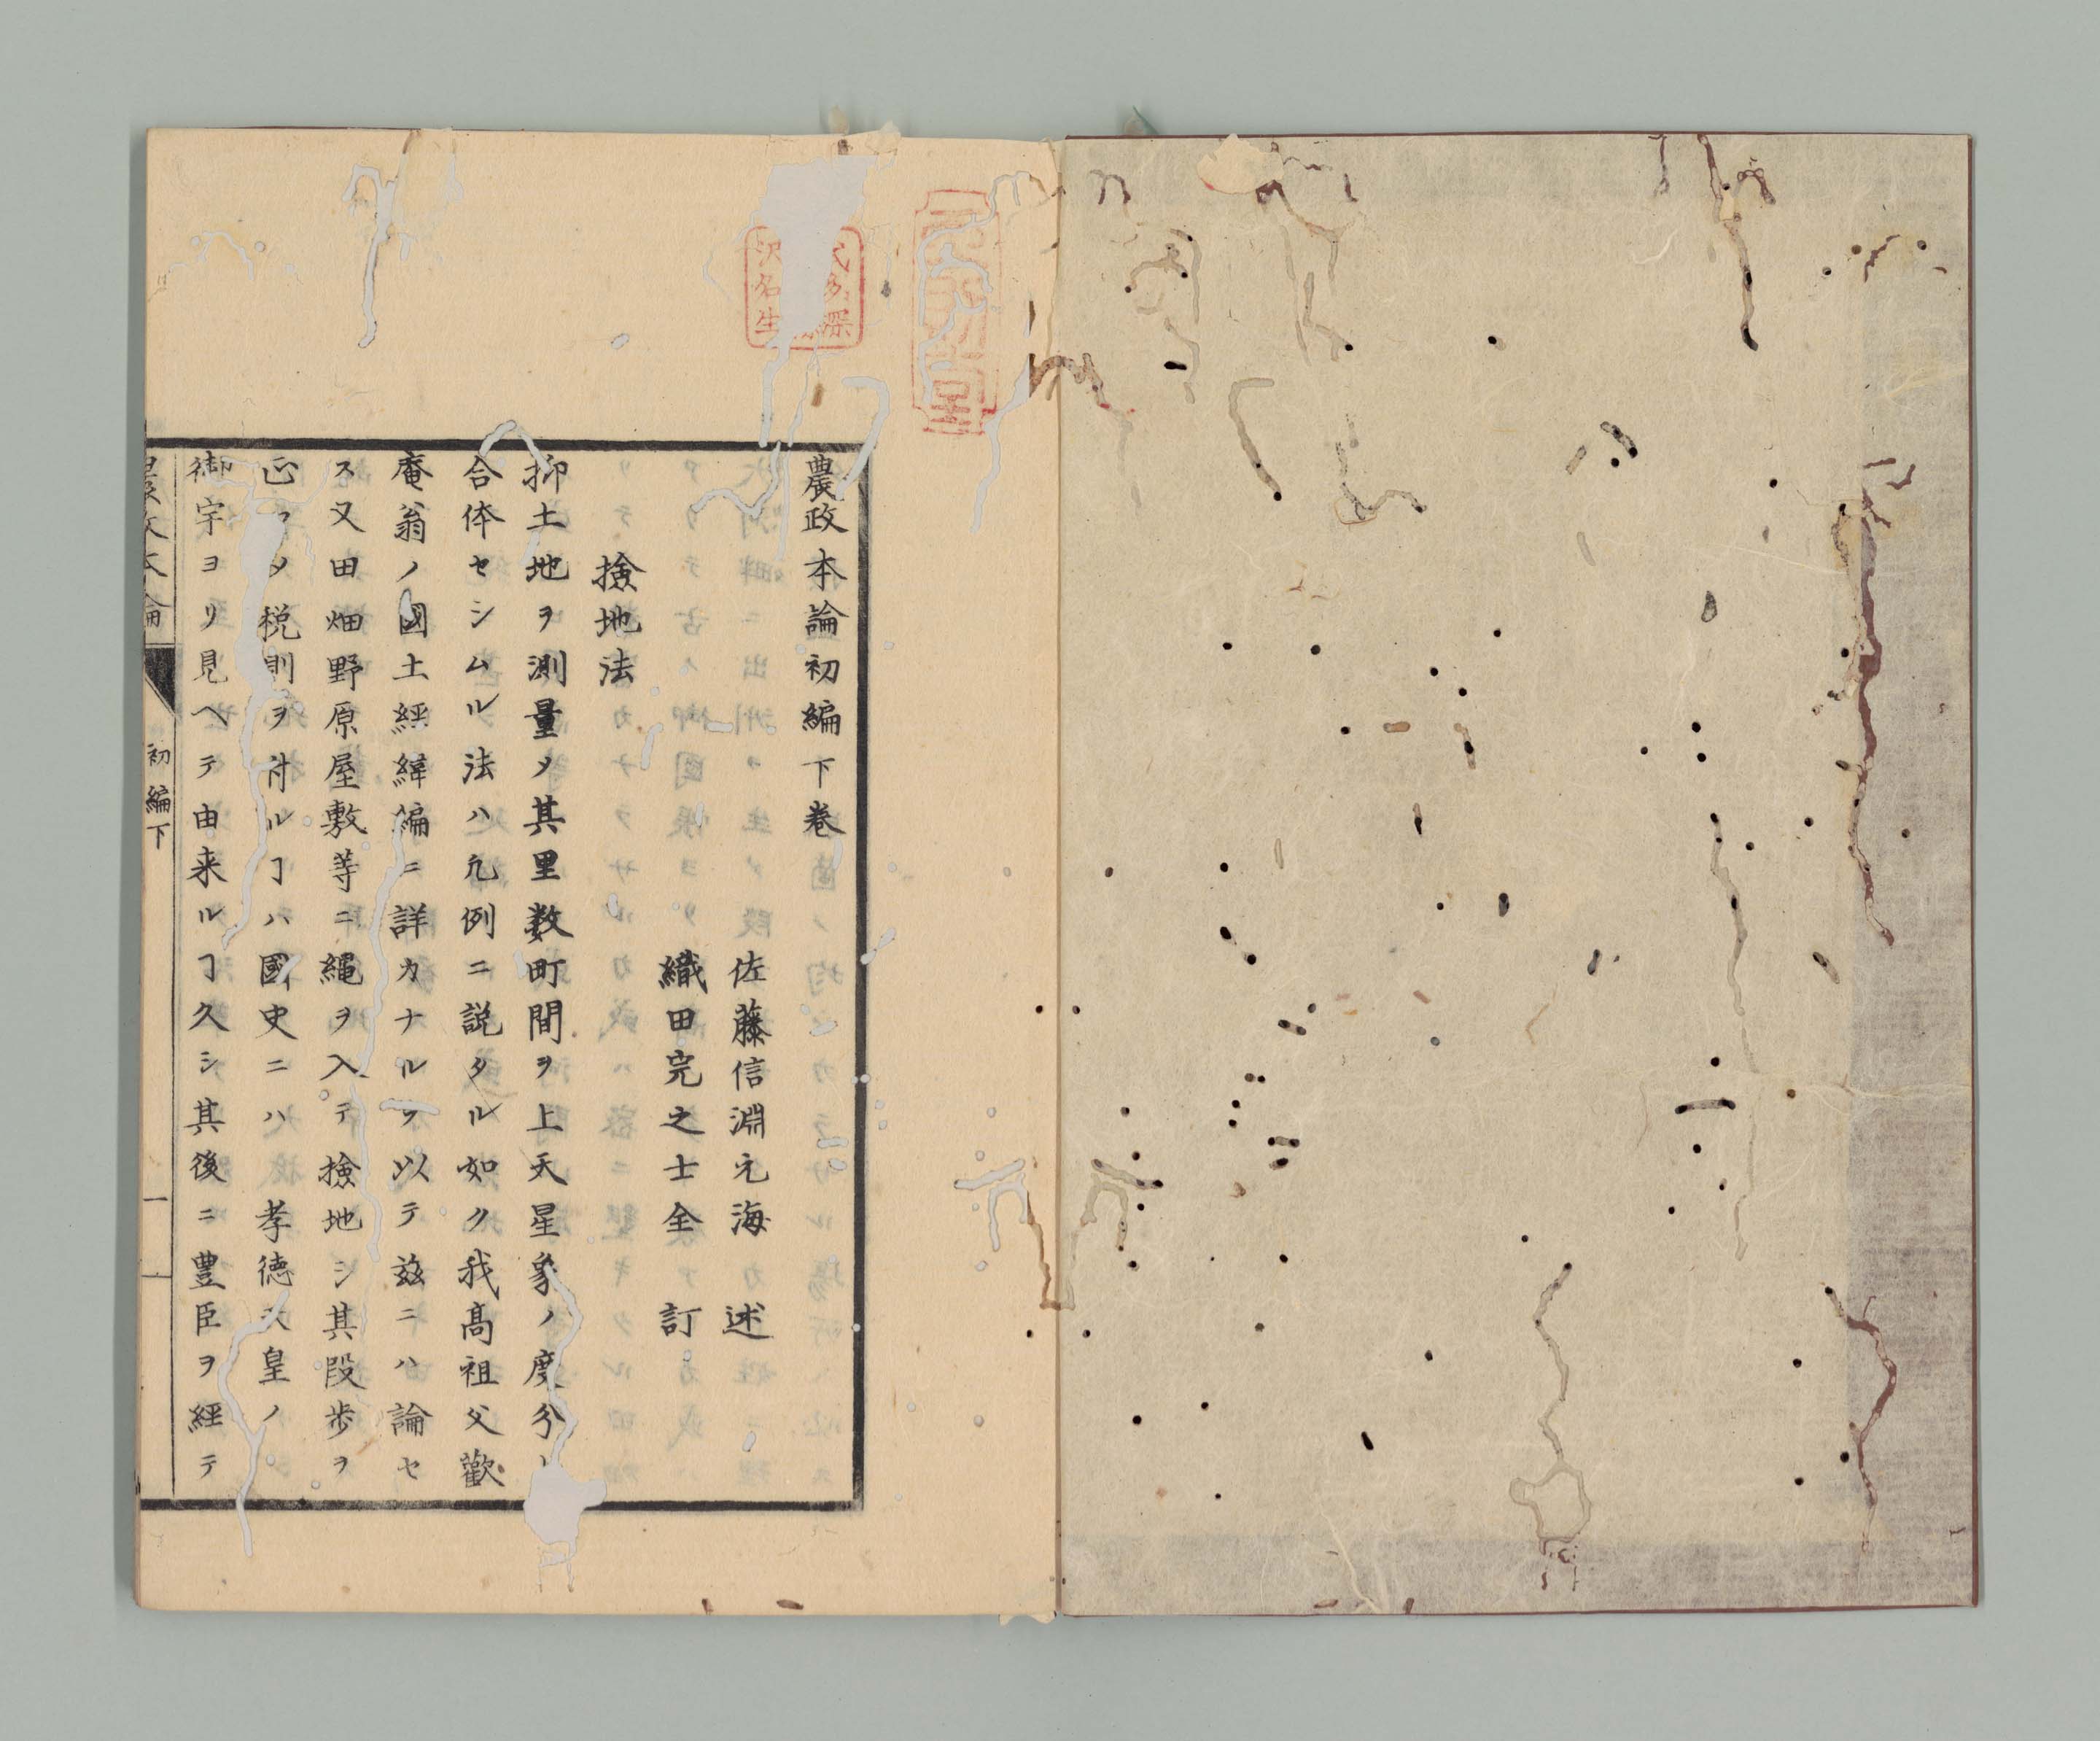 農政本論初編下卷
佐藤信淵元海 述
織田完之士全 訂
撿地法
抑土地ヲ測量〆其里数町間ヲ上天星象ノ度分
合体セシムル法ハ凢例ニ説タル如ク我髙祖父歡
庵翁ノ國土経緯編ニ詳カナルヲ以テ茲ニハ論セ
ス又田畑野原屋敷等ニ縄ヲ入テ撿地シ其段歩ヲ
正〆税則ヲ附ルヿハ國史ニハ 孝徳天皇ノ
御宇ヨリ見ヘテ由来ルヿ久シ其後ニ豊臣ヲ経テ
農政本論 初編下 一